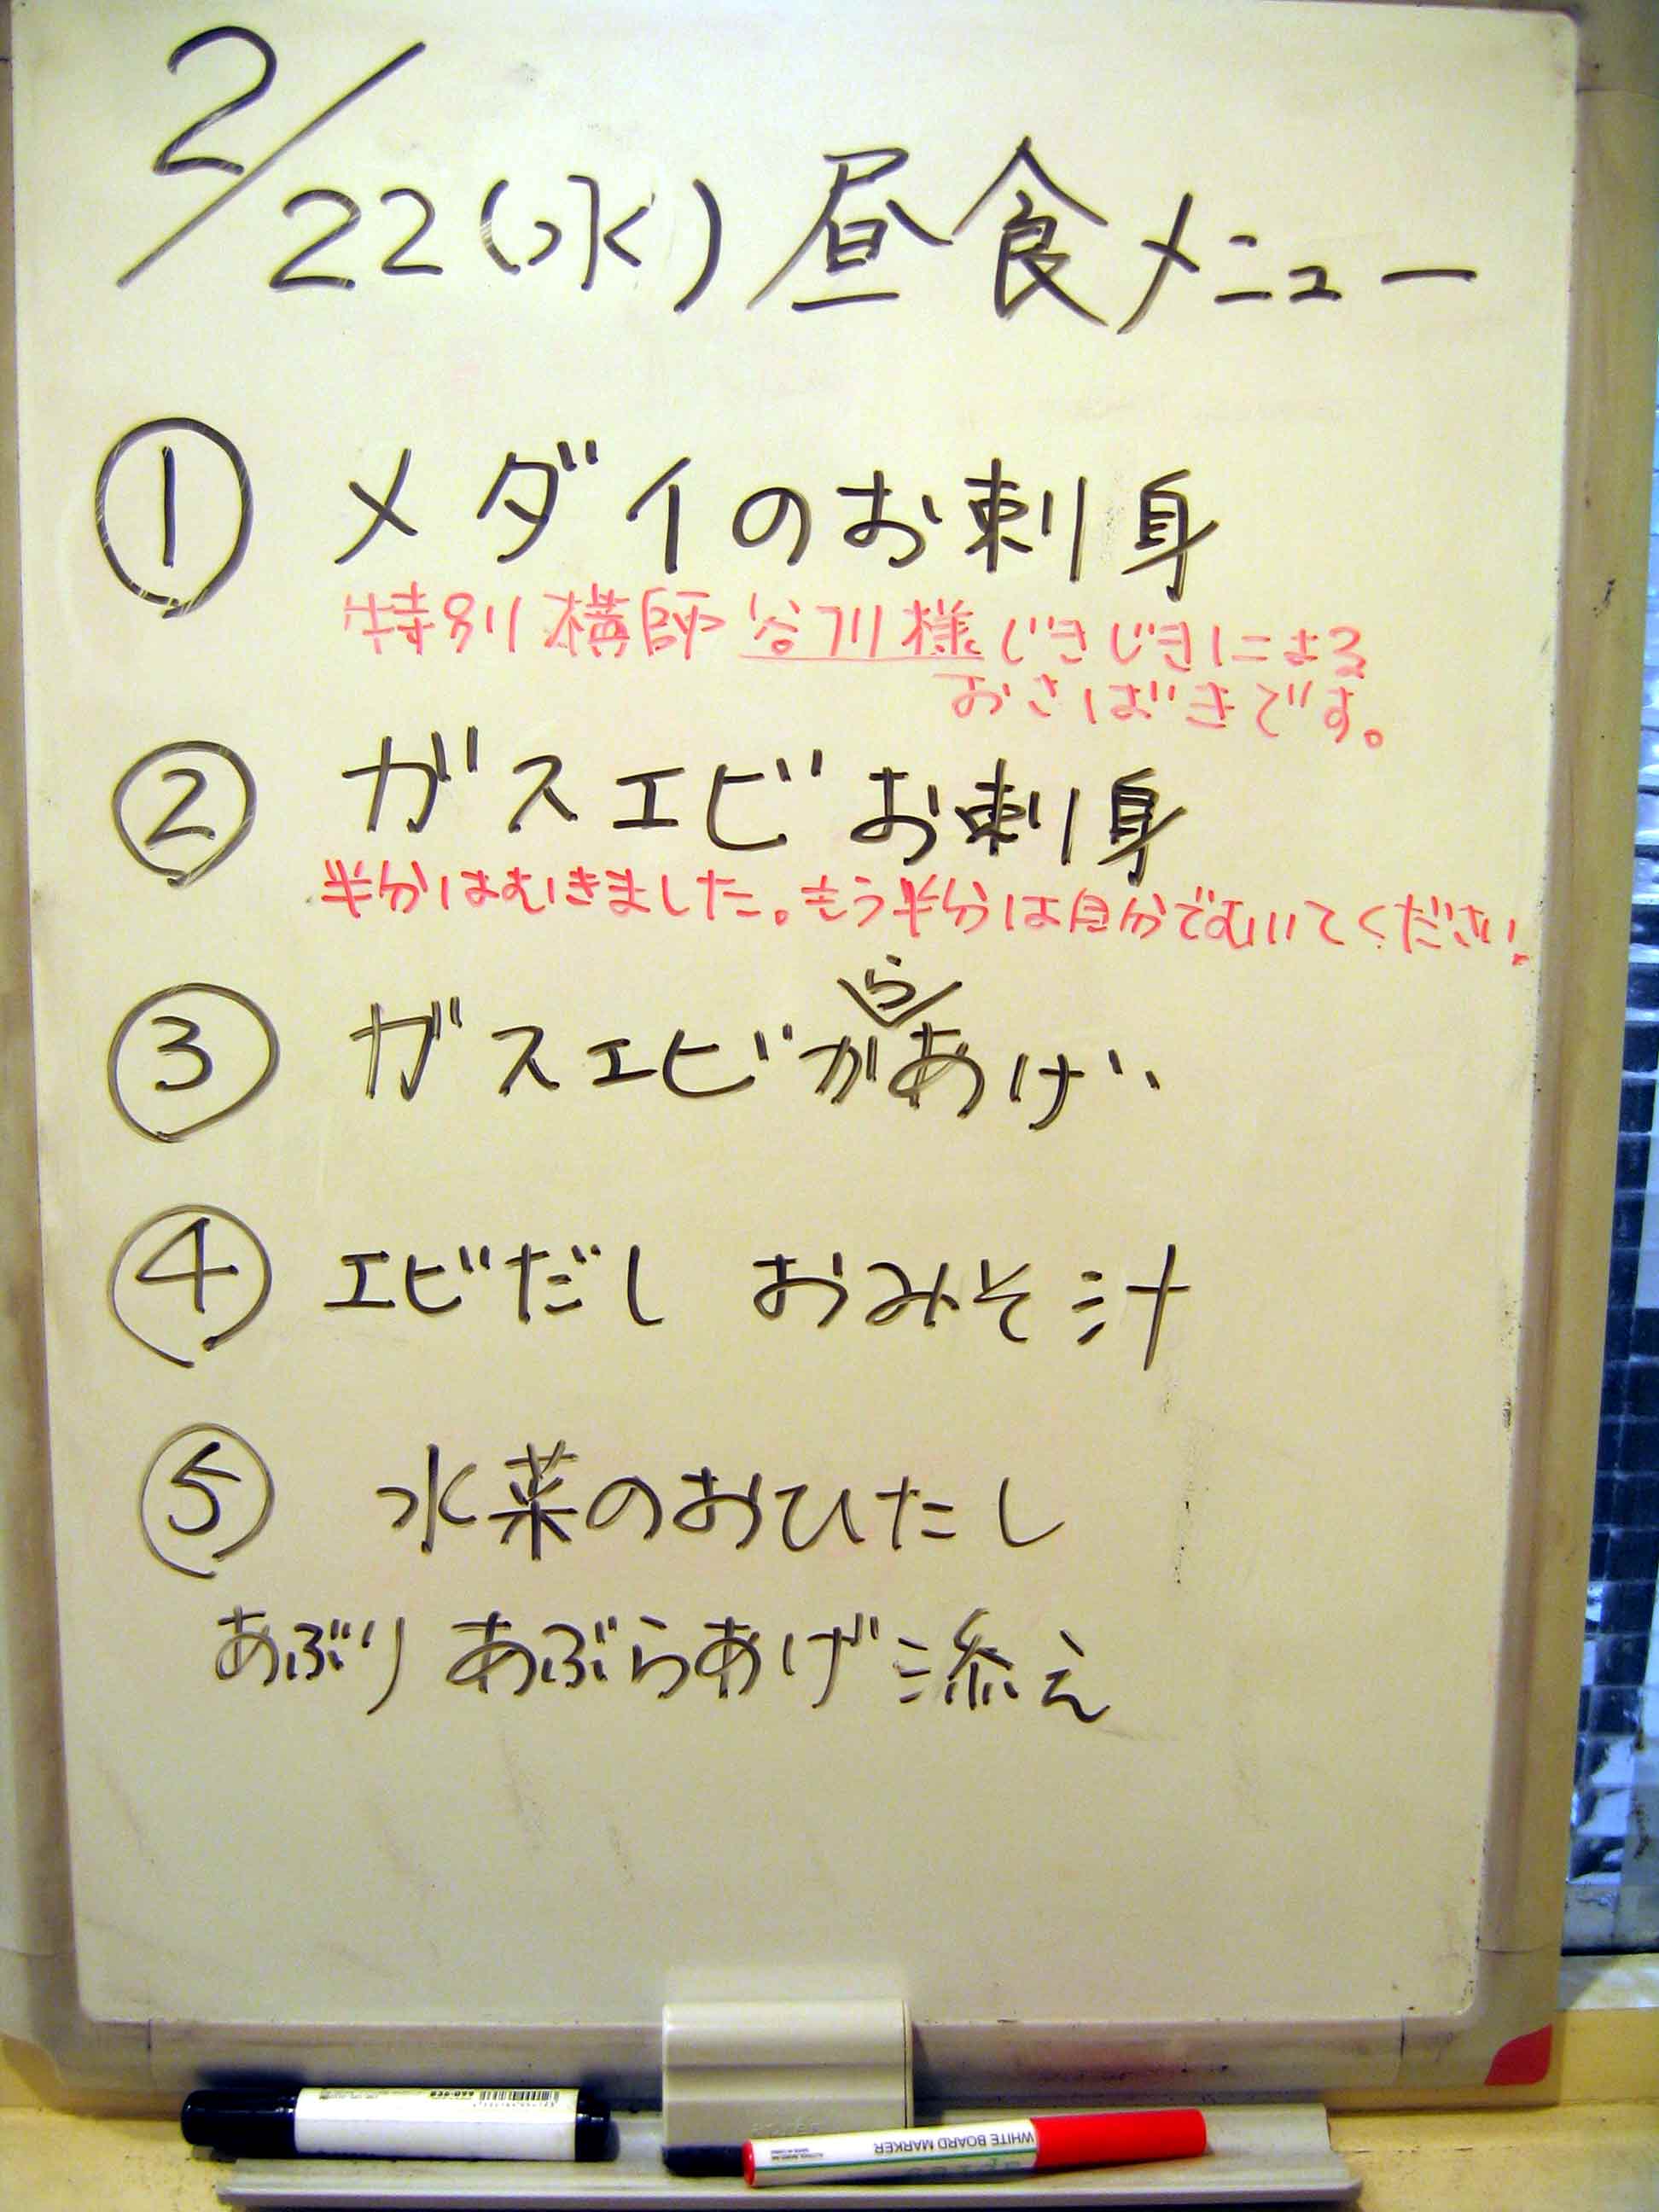 2/22(水)昼食メニュー
① メダイのお刺身
特別横師 谷川様 じきじきによる
おさばきです。
② ガスエビお刺身
半分はむきました。もう半分は自分でむいてください。
③ ガスエビからあげ
④ エビだし おみそ汁
⑤ 水菜のおひたし
あぶり あぶらあげ添え
WHITE BOARD MARKER